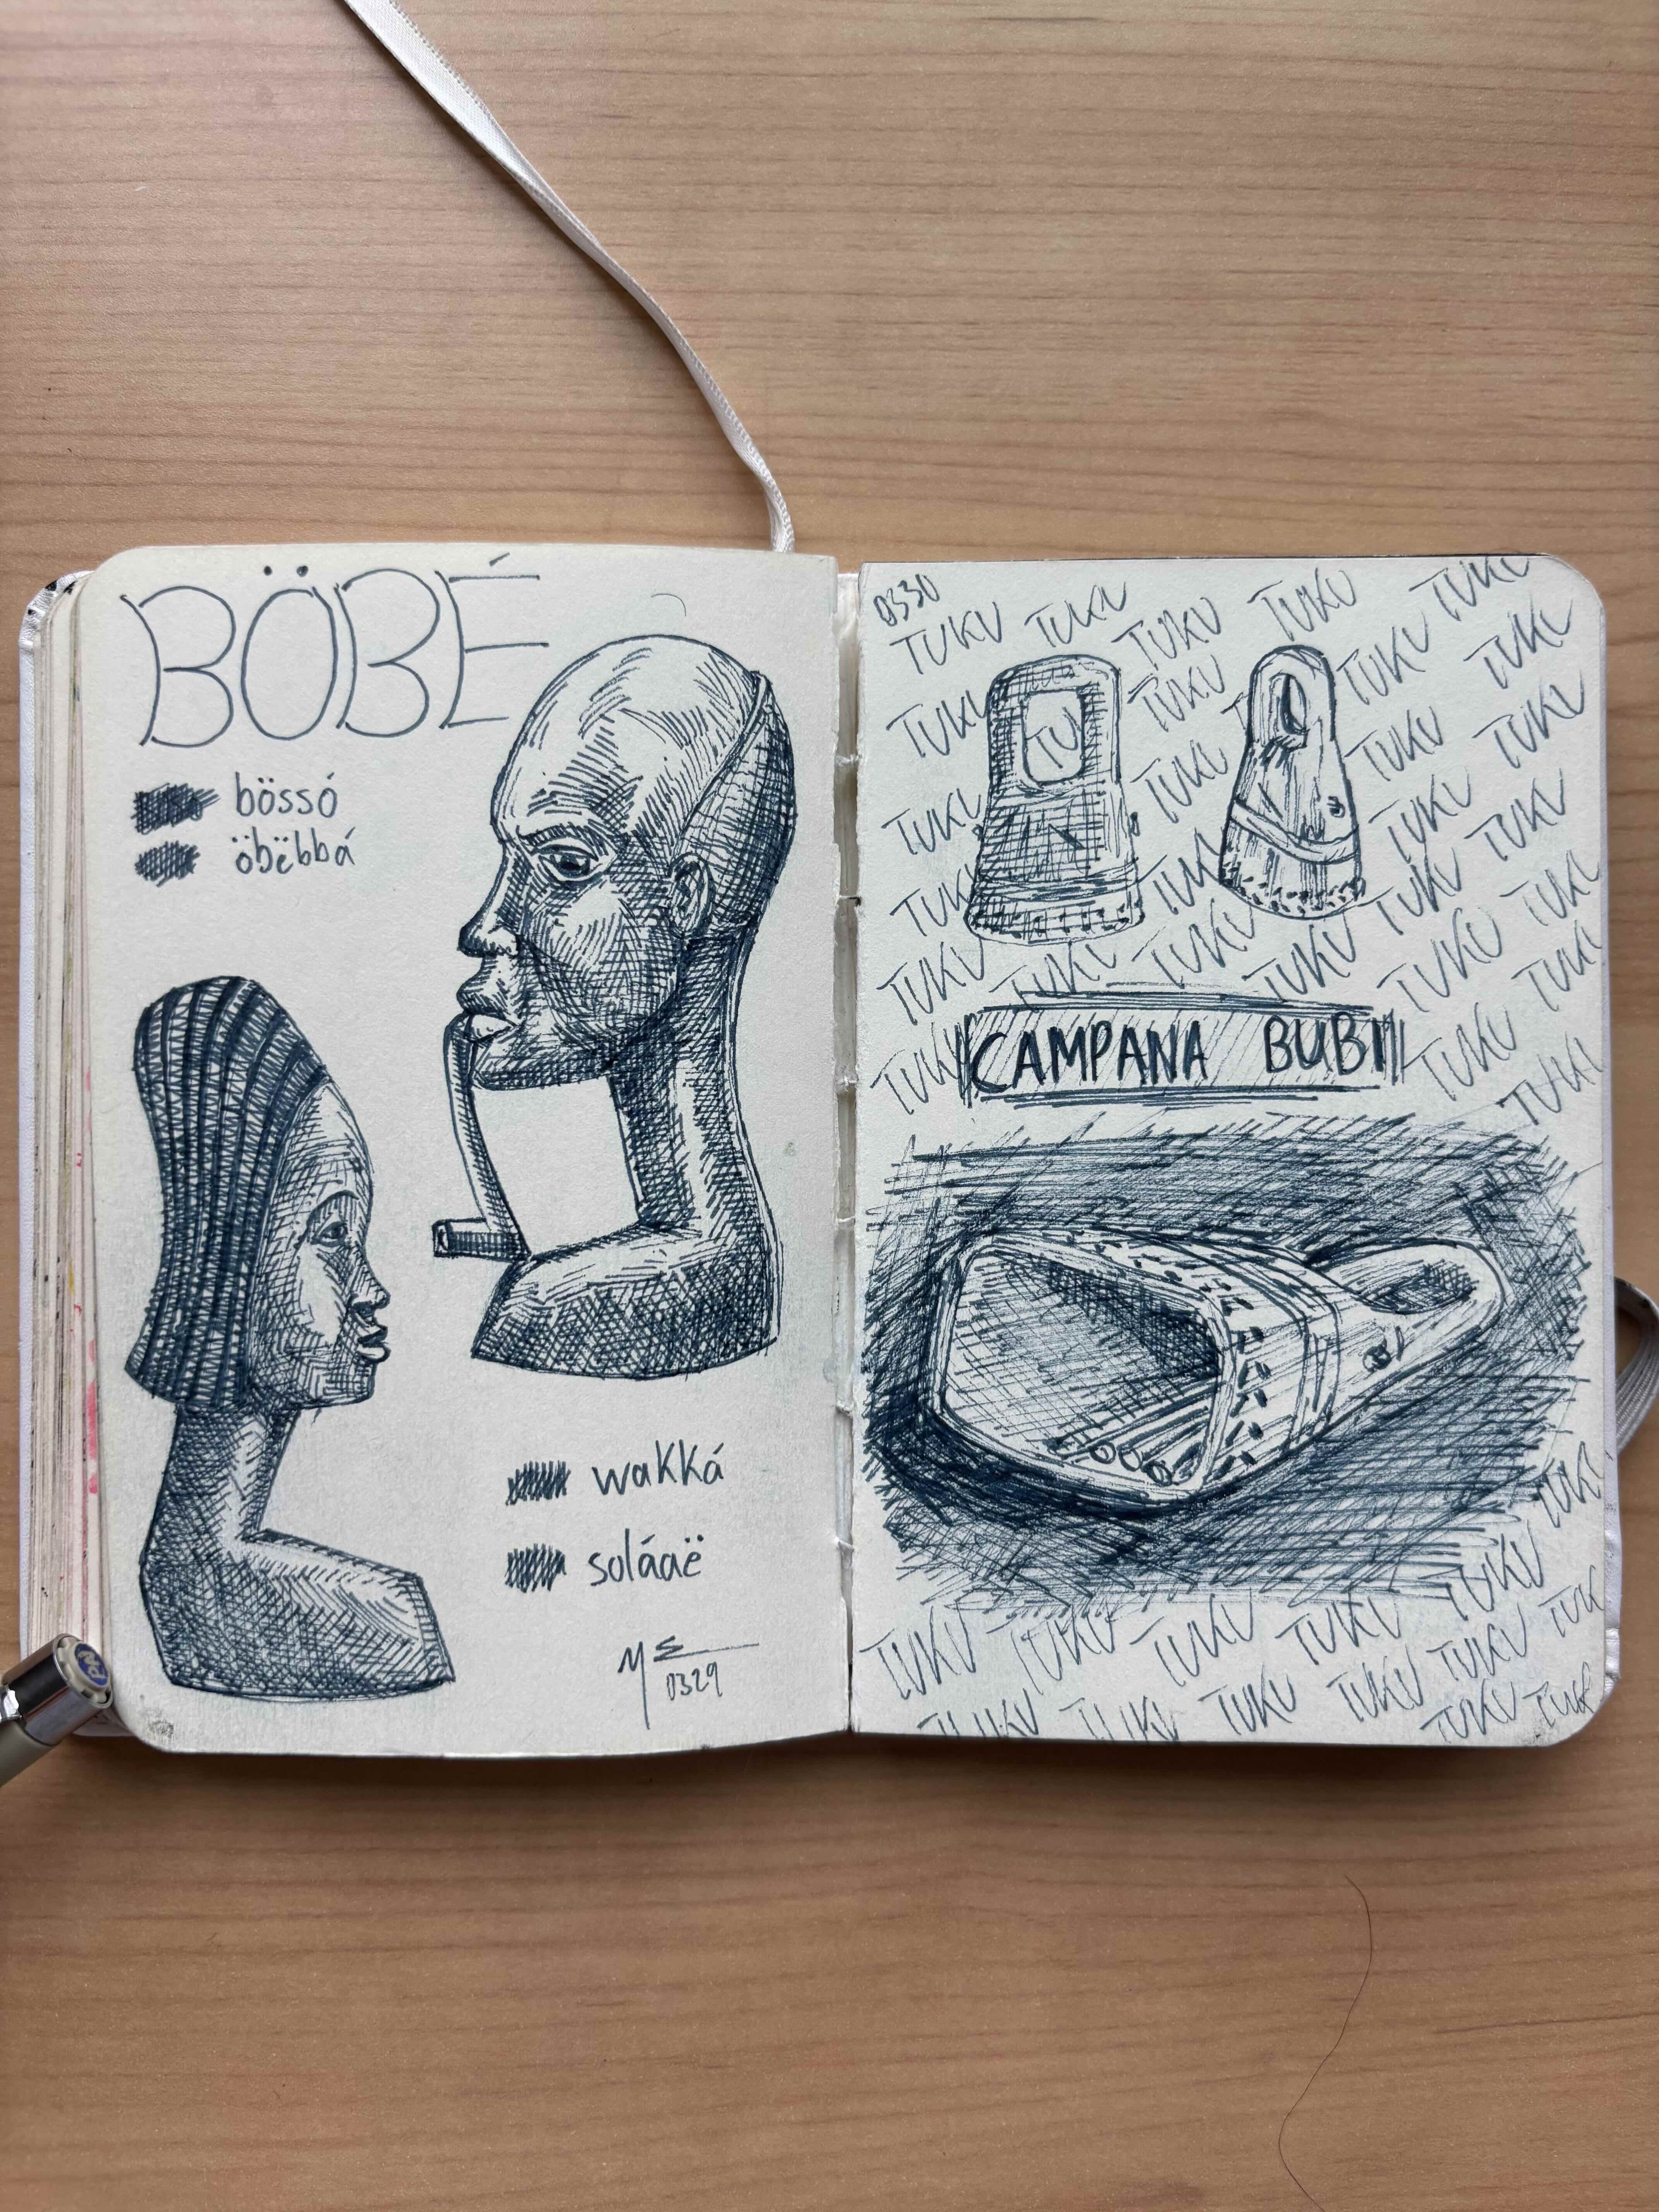 BÖBÉ
bössó
öbëbbá
wakká
soláaë
0329
0330
TUKU TUKU TUKU TUKU TUKU
TUKU TU TUKU TUKU TUKU
TUKU TUKU TUKU TUKU
TUKU TUKU TUKU TUKU
TUKU TUKU TUKU TUKU TUKU TUKU
TUKU TUKU TUKU
CAMPANA BUBI
TUKU TUKU
TUKU
TUKU TUKU TUKU TUKU TUKU
TUKU TUKU TUKU TUKU TUKU
TUKU